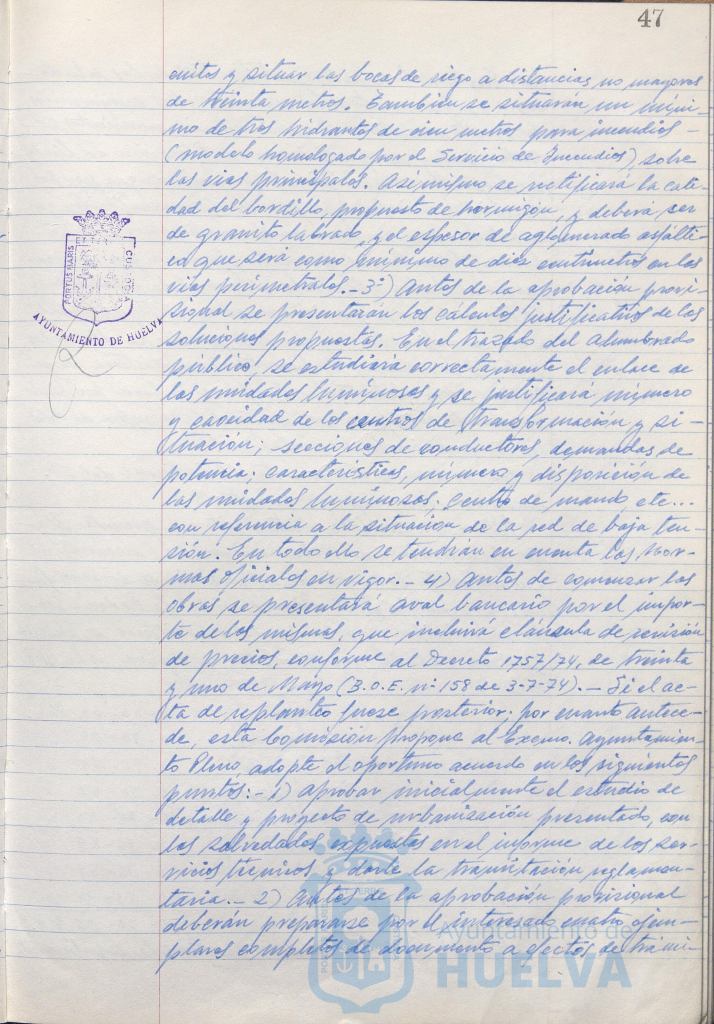 47
cuitos y situar las bocas de riego a distancias no mayores
de treinta metros. También se situarán un míni-
mo de tres hidrantes de cien metros para incendios -
(modelo homologado por el Servicio de Incendios), sobre
las vías principales. Asimismo se rectificará la cali-
dad del bordillo, propuesto de hormigón, y deberá ser
de granito labrado, y el espesor de aglomerado asfálti-
co que será como mínimo de diez centímetros en las
vías perimetrales.- 3º) Antes de la aprobación provi-
sional se presentarán los cálculos justificativos de las
soluciones propuestas. En el trazado del Alumbrado
público, se estudiará correctamente el enlace de
las unidades luminosas y se justificará número
y capacidad de los centros de transformación y si-
tuación; secciones de conductores, demandas de
potencia; características, número y disposición de
las unidades luminosas. Centro de mando etc...
con referencia a la situación de la red de baja ten-
sión. En todo ello se tendrán en cuenta las Nor-
mas oficiales en vigor.- 4) Antes de comenzar las
obras, se presentará aval bancario por el impor-
te de las mismas, que incluirá cláusula de revisión
de precios, conforme al Decreto 1757/74, de treinta
y uno de Mayo (B.O.E. nº 158 de 3-7-74).- Si el ac-
ta de replanteo fuese posterior. por cuanto antece-
de, esta Comisión propone al Excmo. Ayuntamien-
to Pleno, adopte el oportuno acuerdo en los siguientes
puntos:- 1) Aprobar inicialmente el estudio de
detalle y proyecto de urbanización presentado, con
las salvedades expuestas en el informe de los ser-
vicios técnicos, y darle la tramitación reglamen-
taria.- 2) Antes de la aprobación provisional
deberán prepararse por el interesado cuatro ejem-
plares completos de documento a efectos de trámi-
PORTUS MARIS
CUSTODIA
AYUNTAMIENTO DE HUELVA
Ayuntamiento de
HUELVA